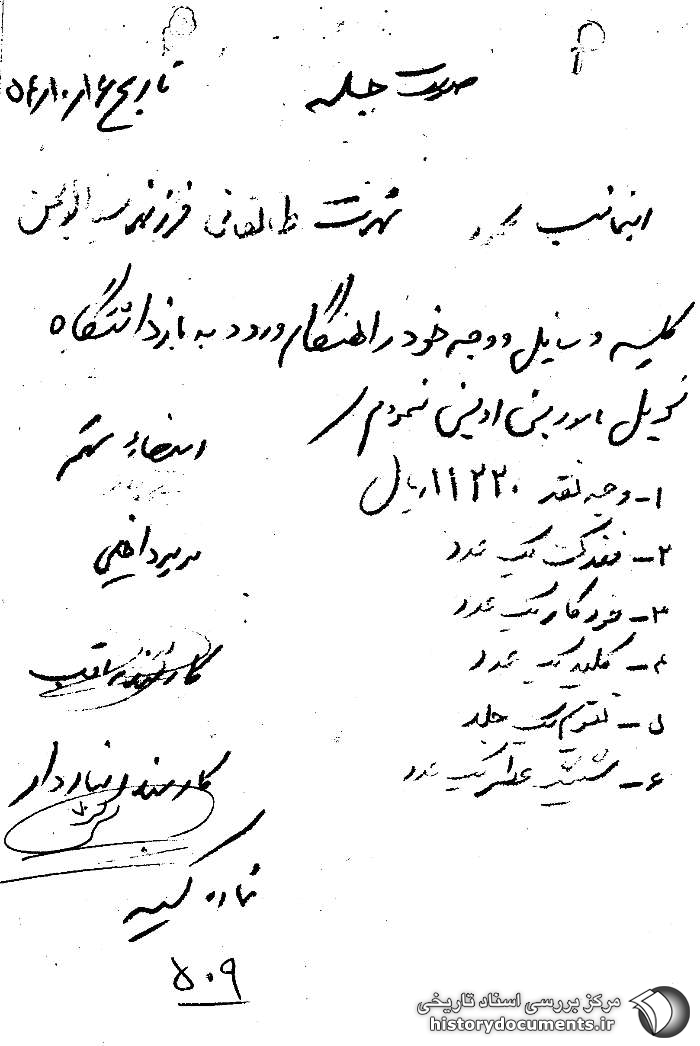 صورت جلسه
تاریخ ۵۴/۱۰/۱۶
اینجانب محمود شهرت طالقانی فرزند سید ابوالحسن
کلیه وسایل و وجه خود را هنگام ورود به بازداشتگاه
تحویل اوین نمودم
امضاء متهم
۱- وجه نقد ۱۱۲۲۰ ریال
۲- فندک یک عدد
مدیر داخلی
۳- خودکار یک عدد
۴- کلید یک عدد
کارمند مراقب
۵- تقویم یک جلد
۶- شیشه عطر یک عدد
کارمند انباردار
شماره کیسه
۵۰۹
مرکز بررسی اسناد تاریخی
historydocuments.ir